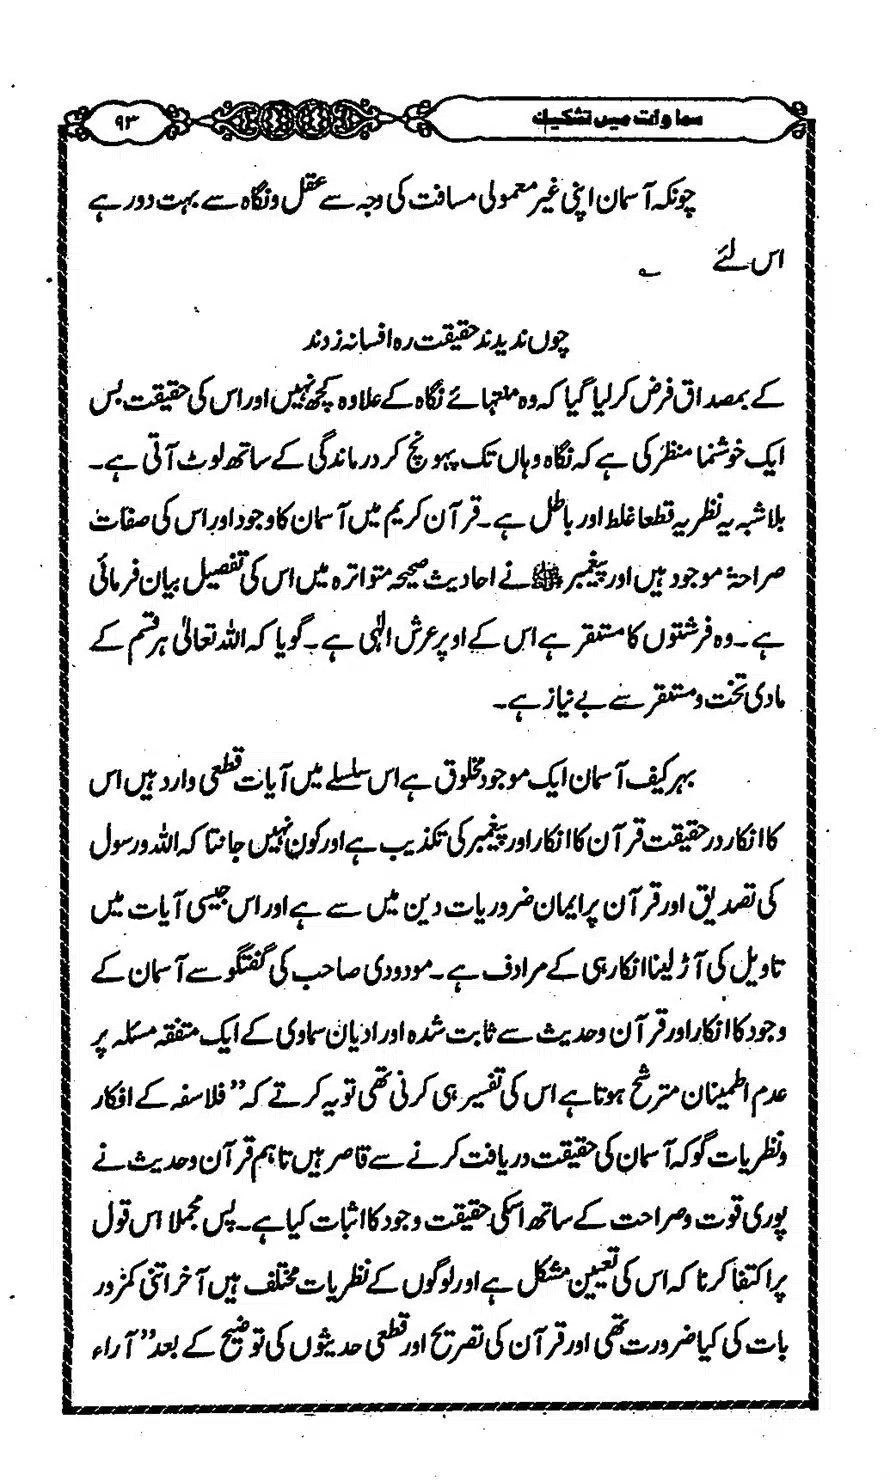 سماوات میں تشکیک
۹۳
چونکہ آسمان اپنی غیر معمولی مسافت کی وجہ سے عقل ونگاہ سے بہت دور ہے
اس لئے ؎
چوں ندیدند حقیقت رہ افسانہ زدند
کے بمصداق فرض کرلیا گیا کہ وہ منتہائے نگاہ کے علاوہ کچھ نہیں اور اس کی حقیقت بس
ایک خوشنما منظر کی ہے کہ نگاہ وہاں تک پہونچ کر درماندگی کے ساتھ لوٹ آتی ہے۔
بلاشبہ یہ نظریہ قطعا غلط اور باطل ہے۔ قرآن کریم میں آسمان کا وجود اور اس کی صفات
صراحۃ موجود ہیں اور پیغمبر ﷺ نے احادیث صحیحہ متواترہ میں اس کی تفصیل بیان فرمائی
ہے۔ وہ فرشتوں کا مستقر ہے اس کے اوپر عرش الٰہی ہے۔ گویا کہ اللہ تعالیٰ ہر قسم کے
مادی تخت ومستقر سے بے نیاز ہے۔
بہر کیف آسمان ایک موجود مخلوق ہے اس سلسلے میں آیات قطعی وارد ہیں اس
کا انکار در حقیقت قرآن کا انکار اور پیغمبر کی تکذیب ہے اور کون نہیں جانتا کہ اللہ ورسول
کی تصدیق اور قرآن پر ایمان ضروریات دین میں سے ہے اور اس جیسی آیات میں
تاویل کی آڑ لینا انکار ہی کے مرادف ہے۔ مودودی صاحب کی گفتگو سے آسمان کے
وجود کا انکار اور قرآن وحدیث سے ثابت شدہ اور ادیان سماوی کے ایک متفقہ مسئلہ پر
عدم اطمینان مترشح ہوتا ہے اس کی تفسیر ہی کرنی تھی تو یہ کرتے کہ ”فلاسفہ کے افکار
ونظریات گو کہ آسمان کی حقیقت دریافت کرنے سے قاصر ہیں تاہم قرآن وحدیث نے
پوری قوت وصراحت کے ساتھ اسکی حقیقت وجود کا اثبات کیا ہے۔ پس مجملا اس قول
پر اکتفا کرنا کہ اس کی تعیین مشکل ہے اور لوگوں کے نظریات مختلف ہیں آخر اتنی کمزور
بات کی کیا ضرورت تھی اور قرآن کی تصریح اور قطعی حدیثوں کی توضیح کے بعد ”آراء